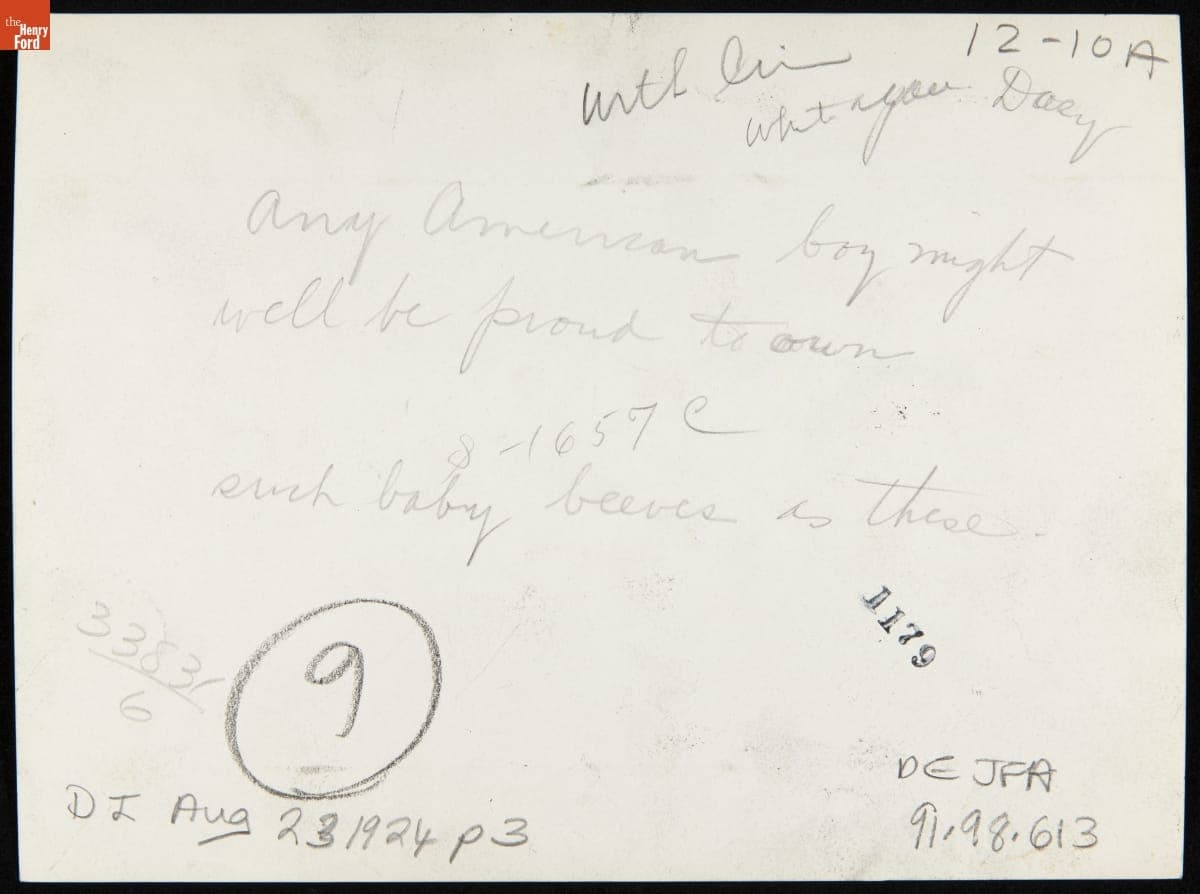 the
Henry
Ford
12-10A
with
what you
any American boy might
well be proud to own
8-1657 C
such baby beeves as these.
3383
6
9
1179
DI Aug 23 1924 p 3
DE JFA
91.98.613